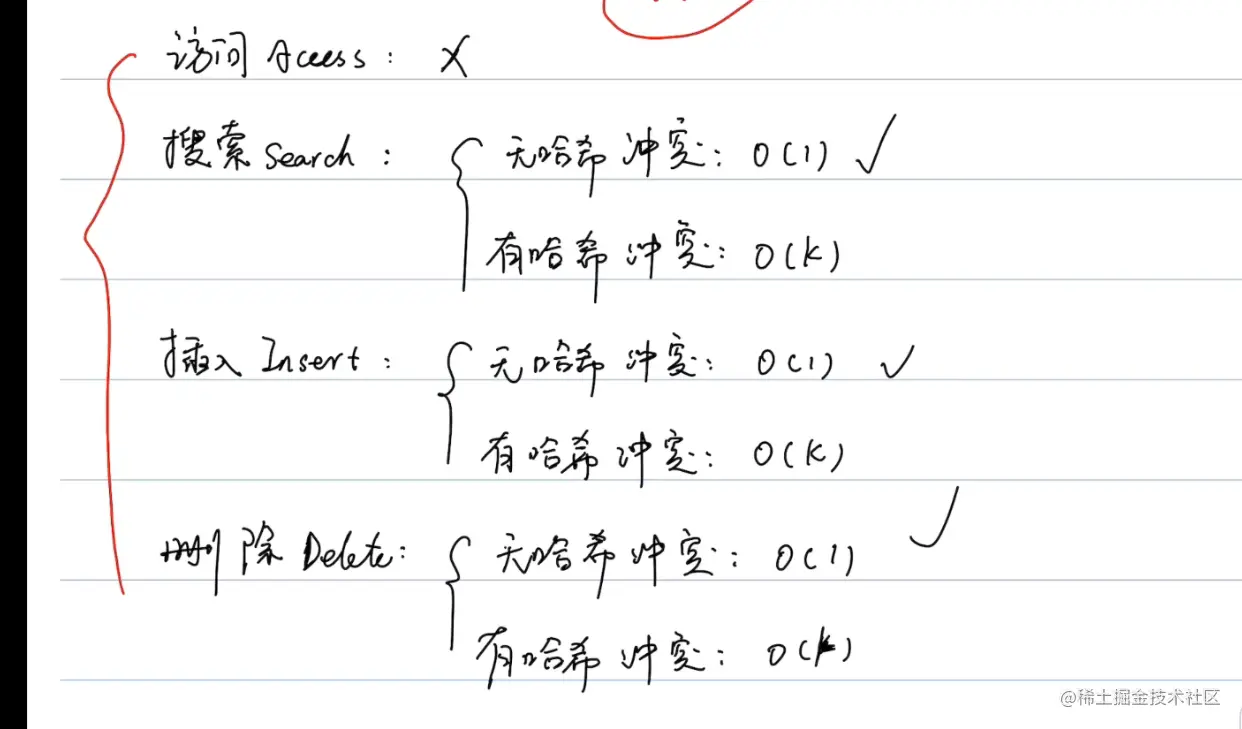 访问 Access : X
搜索 Search : 无哈希冲突: O(1) ✓
有哈希冲突: O(k)
插入 Insert : 无哈希冲突: O(1) ✓
有哈希冲突: O(k)
删除 Delete: 无哈希冲突: O(1) ✓
有哈希冲突: O(k)
@稀土掘金技术社区